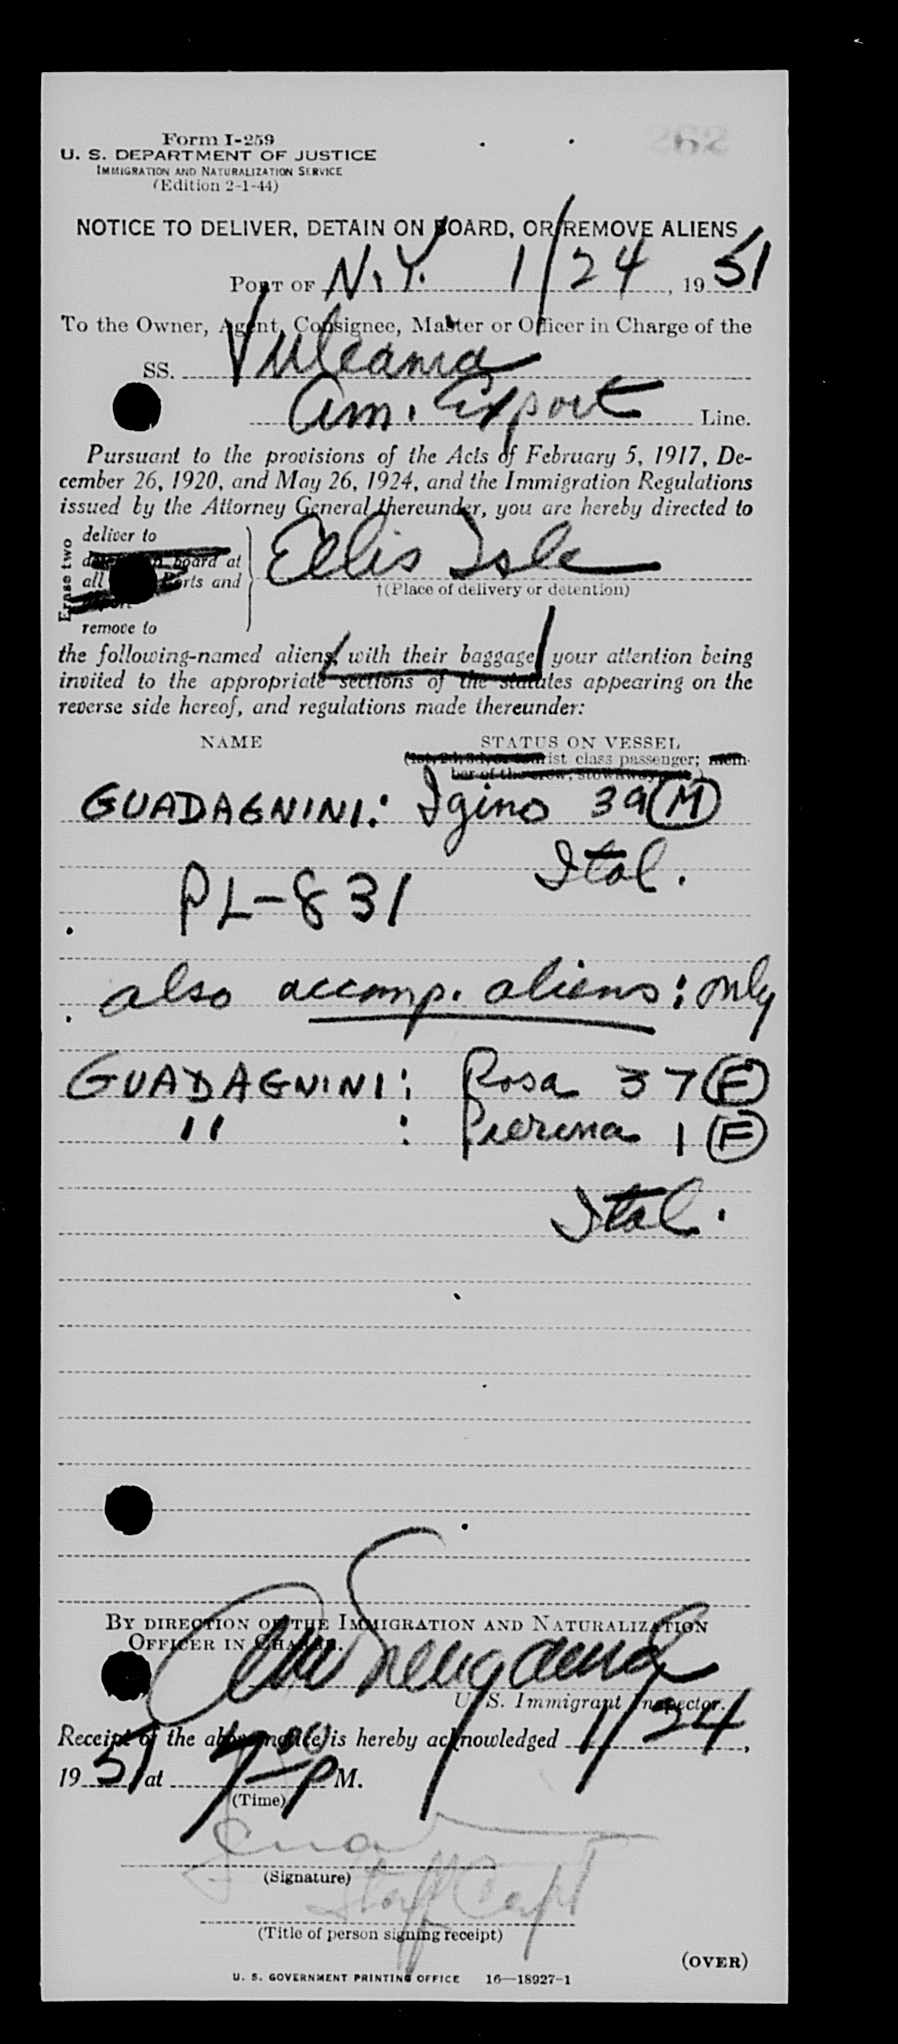 Form I-259
U. S. DEPARTMENT OF JUSTICE
IMMIGRATION AND NATURALIZATION SERVICE
(Edition 2-1-44)
NOTICE TO DELIVER, DETAIN ON BOARD, OR REMOVE ALIENS
PORT OF N.Y. 1/24, 1951
To the Owner, Agent, Consignee, Master or Officer in Charge of the
SS. Vulcania
Am. Export Line.
Pursuant to the provisions of the Acts of February 5, 1917, De-
cember 26, 1920, and May 26, 1924, and the Immigration Regulations
issued by the Attorney General thereunder, you are hereby directed to
Erase two
deliver to
board at
all ports and
remove to
Ellis Isle
†(Place of delivery or detention)
the following-named aliens, with their baggage, your attention being
invited to the appropriate sections of the statutes appearing on the
reverse side hereof, and regulations made thereunder:
NAME STATUS ON VESSEL
(1st, 2d, 3d, or tourist class passenger; mem-
ber of the crew, stowaway, etc.)
GUADAGNINI: Igino 39 M
Ital.
PL-831
also accomp. aliens: only
GUADAGNINI: Rosa 37 F
" : Pierina 1 F
Ital.
BY DIRECTION OF THE IMMIGRATION AND NATURALIZATION
OFFICER IN CHARGE.
U. S. Immigrant Inspector.
Receipt of the above notice is hereby acknowledged 1/24,
1951 at 7 30 P M.
(Time)
(Signature)
Staff Capt
(Title of person signing receipt)
(OVER)
U. S. GOVERNMENT PRINTING OFFICE 16—18927-1